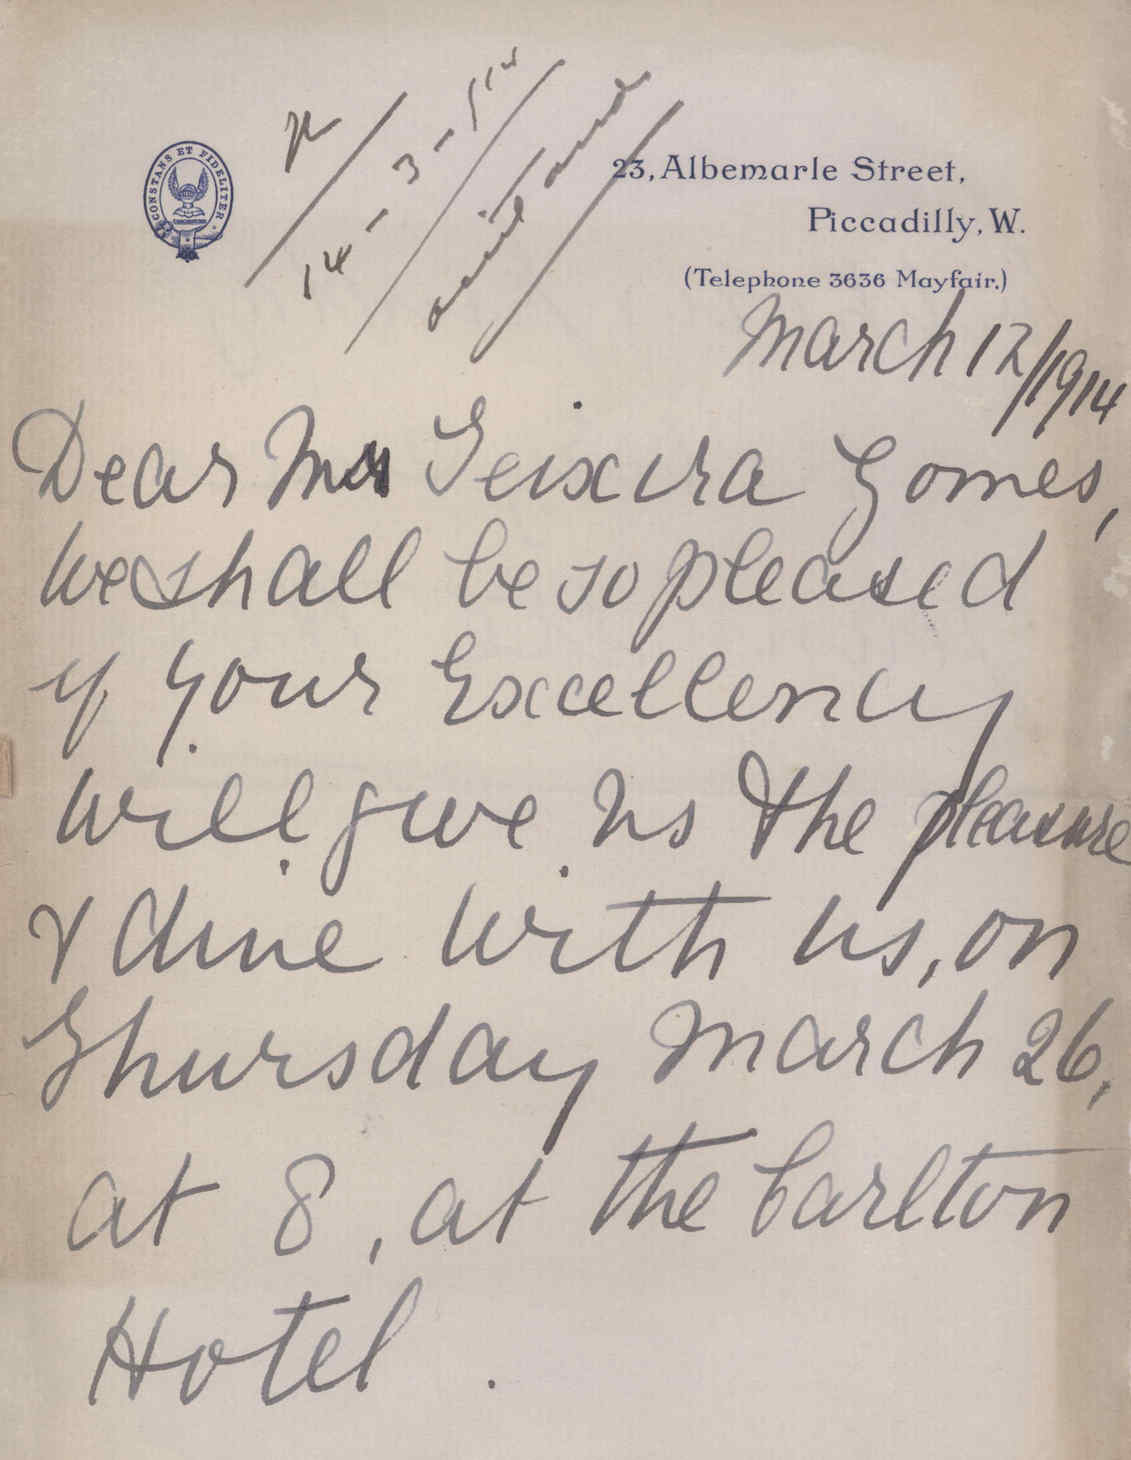 CONSTANS ET FIDELITER
R
14-3-914
aceitando
23, Albemarle Street,
Piccadilly, W.
(Telephone 3636 Mayfair.)
March 12/1914
Dear Mr Teixeira Gomes,
We shall be so pleased
if your Excellency
will give us the pleasure
& dine with us, on
Thursday March 26,
at 8, at the Carlton
Hotel.